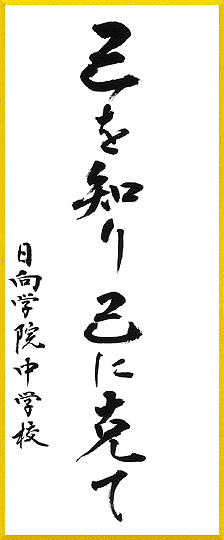 己を知り己に克て
日向学院中学校